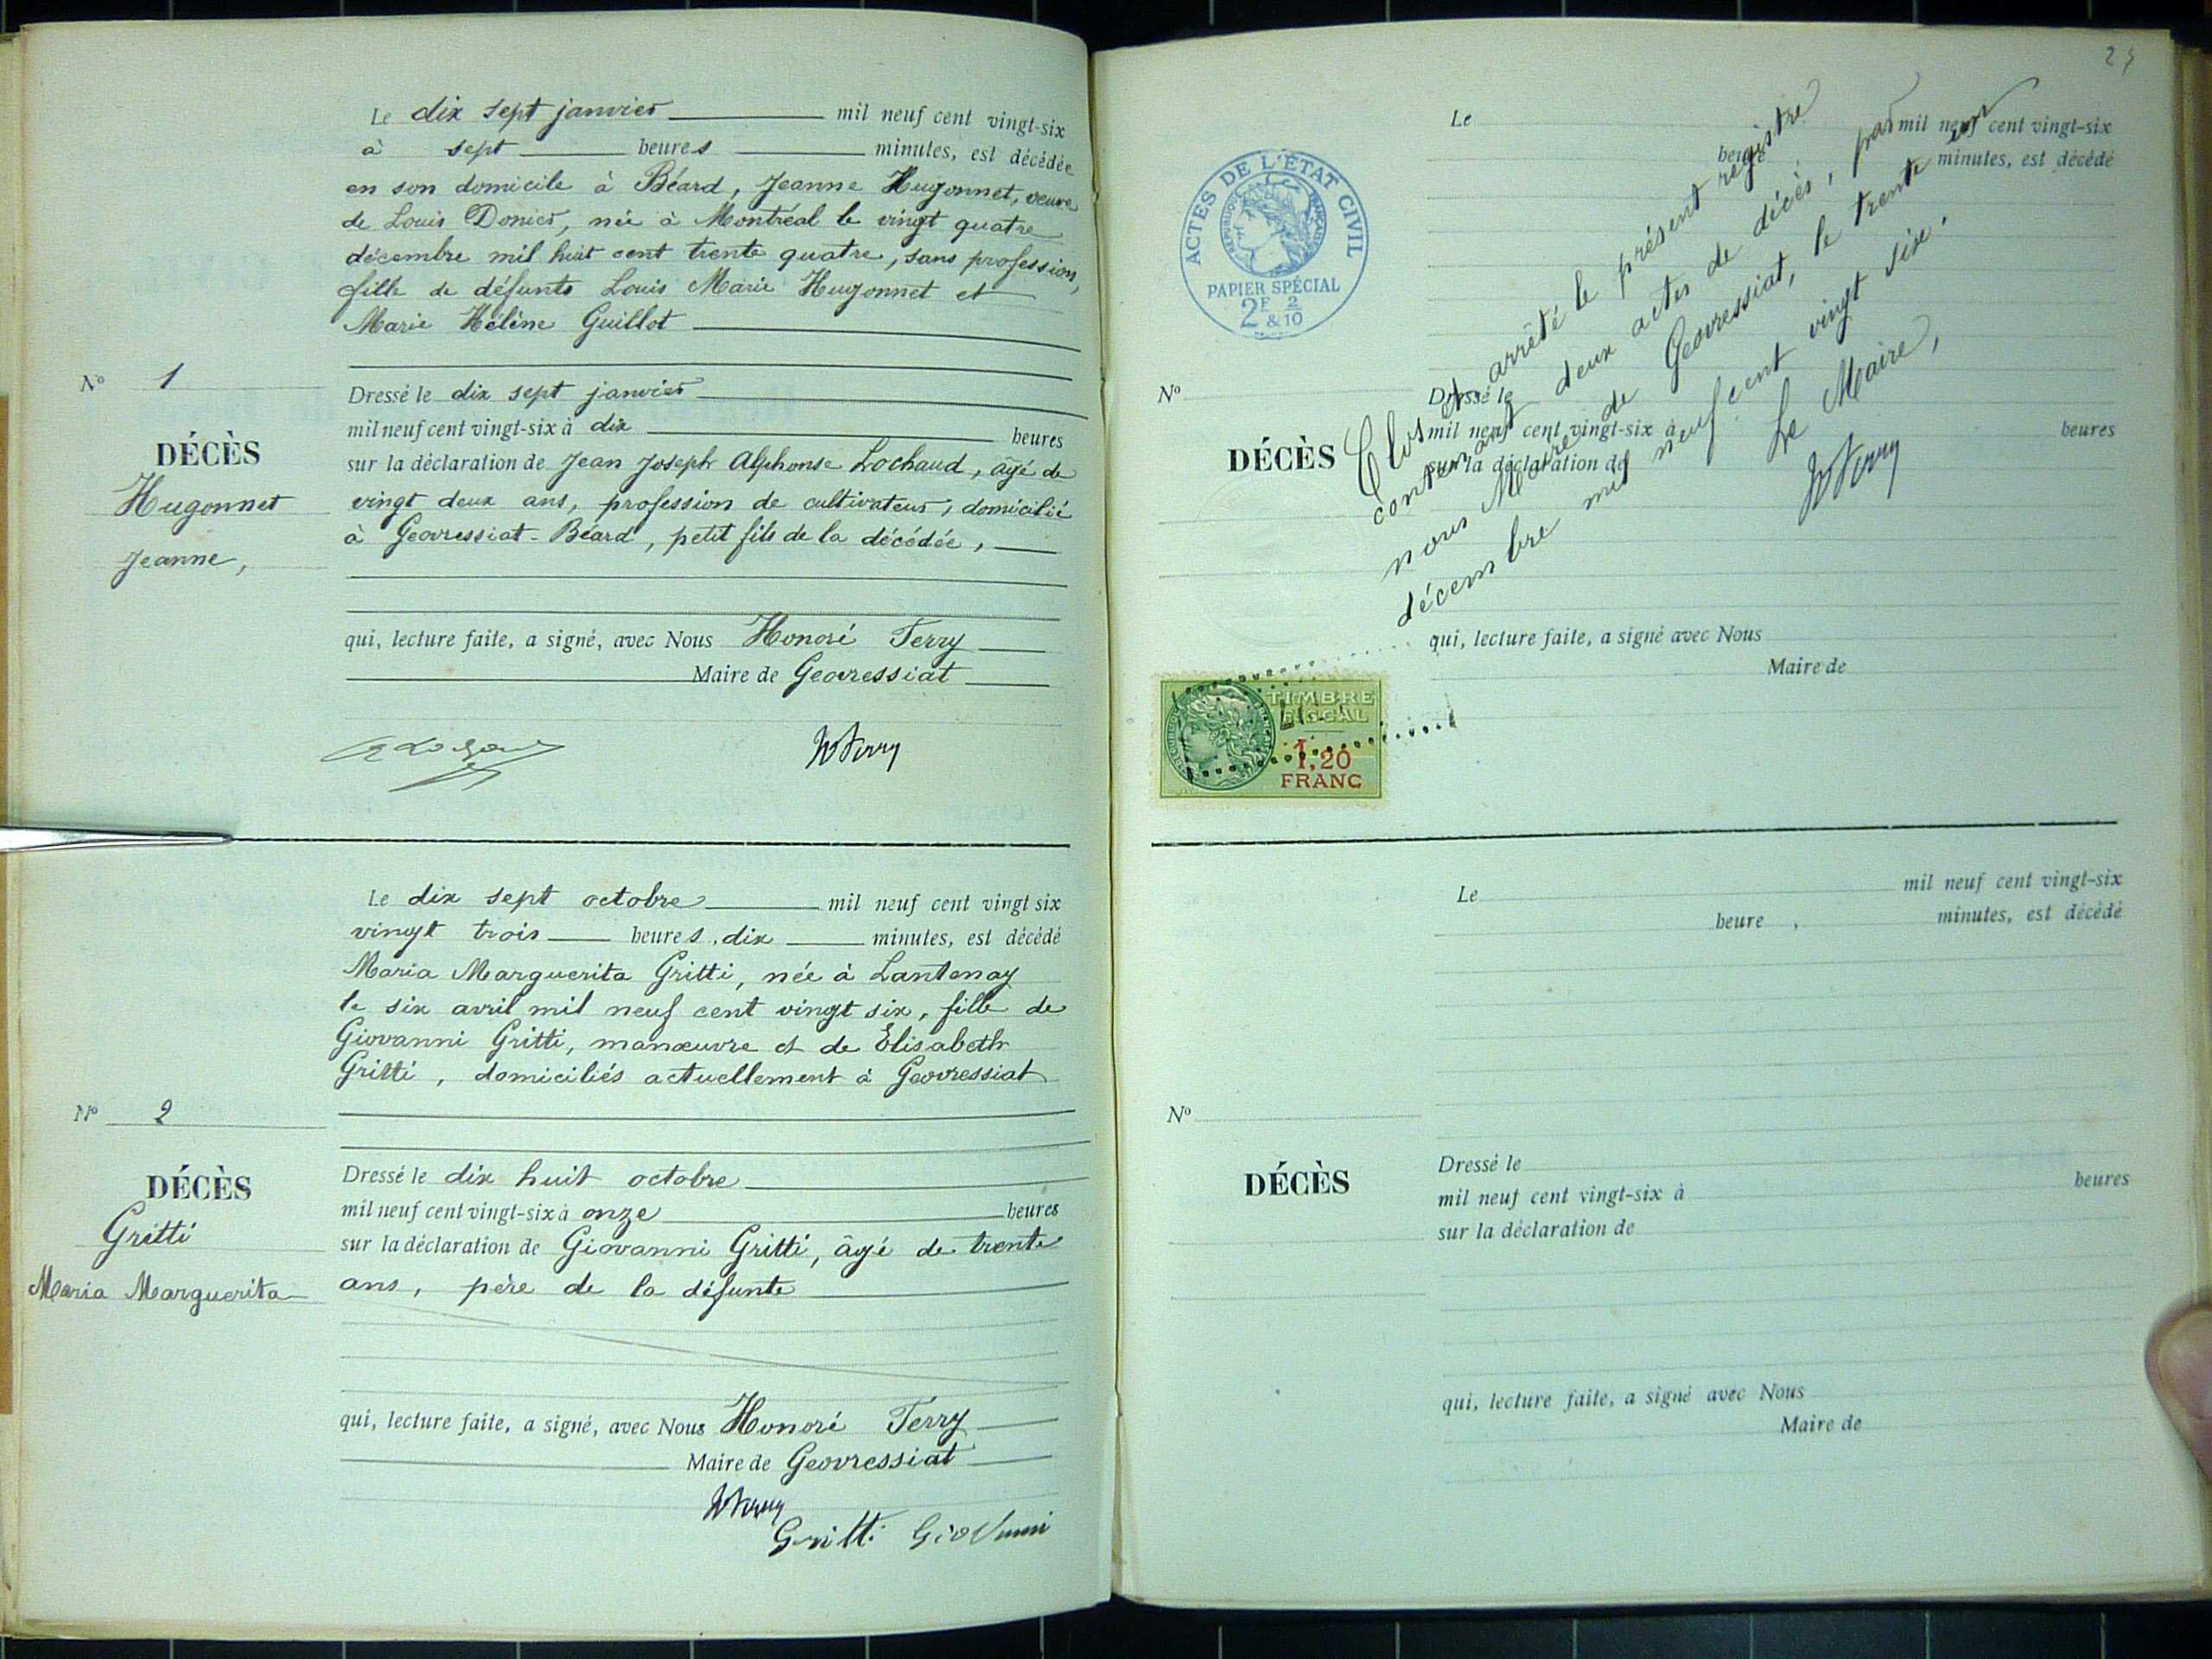 Le dix sept janvier mil neuf cent vingt-six
à sept heures minutes, est décédée
en son domicile à Béard, Jeanne Hugonnet, veuve
de Louis Donier, née à Montréal le vingt quatre
décembre mil huit cent trente quatre, sans profession,
fille de défunts Louis Marie Hugonnet et
Marie Hélène Guillot
N° 1
Dressé le dix sept janvier
mil neuf cent vingt-six à dix heures
DÉCÈS
sur la déclaration de Jean Joseph Alphonse Lochaud, âgé de
Hugonnet
vingt deux ans, profession de cultivateur, domicilié
Jeanne,
à Geovressiat-Béard, petit fils de la décédée,
qui, lecture faite, a signé, avec Nous Honoré Ferry
Maire de Geovressiat
HFerry
Le dix sept octobre mil neuf cent vingt six
vingt trois heures, dix minutes, est décédé
Maria Marguerita Gritti, née à Lantenay
le six avril mil neuf cent vingt six, fille de
Giovanni Gritti, manœuvre et de Elisabeth
Gritti, domiciliés actuellement à Geovressiat
N° 2
DÉCÈS
Dressé le dix huit octobre
mil neuf cent vingt-six à onze heures
Gritti
sur la déclaration de Giovanni Gritti, âgé de trente
Maria Marguerita
ans, père de la défunte
qui, lecture faite, a signé, avec Nous Honoré Ferry
Maire de Geovressiat
HFerry
Gritti Giovanni
29
Le mil neuf cent vingt-six
heure minutes, est décédé
ACTES DE L'ÉTAT CIVIL
RÉPUBLIQUE FRANÇAISE
PAPIER SPÉCIAL
2F 2
& 10
N°
Dressé le
mil neuf cent vingt-six à heures
DÉCÈS
sur la déclaration de
Clos et arrêté le présent registre
contenant deux actes de décès, par
nous Maire de Geovressiat, le trente un
décembre mil neuf cent vingt six.
Le Maire,
HFerry
qui, lecture faite, a signé avec Nous
Maire de
TIMBRE
FISCAL
1,20
FRANC
Le mil neuf cent vingt-six
heure , minutes, est décédé
N°
DÉCÈS
Dressé le
mil neuf cent vingt-six à heures
sur la déclaration de
qui, lecture faite, a signé avec Nous
Maire de